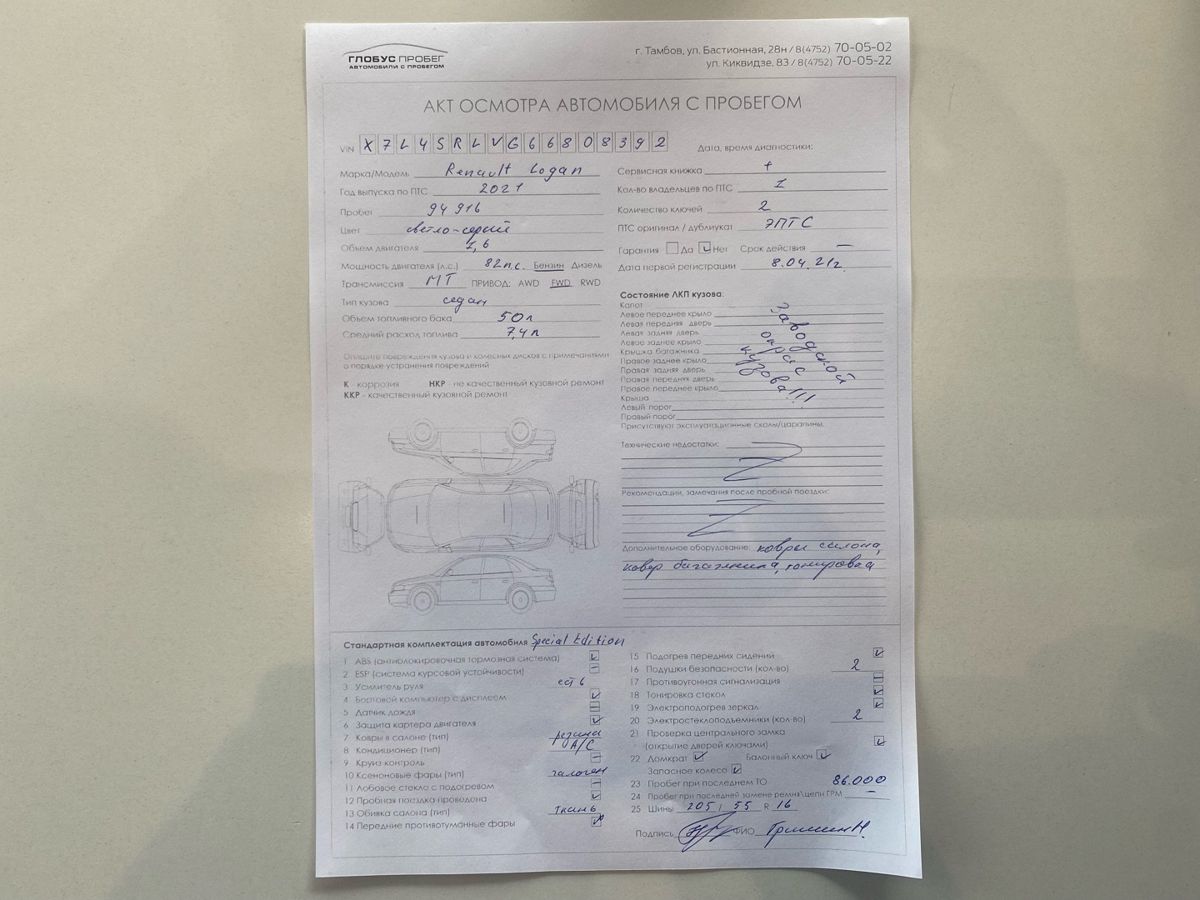 ГЛОБУС ПРОБЕГ
АВТОМОБИЛИ С ПРОБЕГОМ
г. Тамбов, ул. Бастионная, 28н / 8(4752) 70-05-02
ул. Киквидзе, 83 / 8(4752) 70-05-22
АКТ ОСМОТРА АВТОМОБИЛЯ С ПРОБЕГОМ
VIN X7L4SRLVG66808392
Марка/Модель Renault Logan
Год выпуска по ПТС 2021
Пробег 94 916
Цвет светло-серый
Объем двигателя 1,6
Мощность двигателя (л.с.) 82 л.с. Бензин Дизель
Трансмиссия МТ ПРИВОД: AWD FWD RWD
Тип кузова седан
Объем топливного бака 50л
Средний расход топлива 7,4 л
Опишите повреждения кузова и колесных дисков с примечаниями
о порядке устранения повреждений
К - коррозия НКР - не качественный кузовной ремонт
ККР - качественный кузовной ремонт
Дата, время диагностики:
Сервисная книжка +
Кол-во владельцев по ПТС 1
Количество ключей 2
ПТС оригинал / дубликат ЭПТС
Гарантия Да Нет Срок действия —
Дата первой регистрации 8.04.21г.
Состояние ЛКП кузова:
Капот
Левое переднее крыло
Левая передняя дверь
Левая задняя дверь
Левое заднее крыло
Крышка багажника
Правое заднее крыло
Правая задняя дверь
Правая передняя дверь
Правое переднее крыло
Крыша
Левый порог
Правый порог
Заводской
окрас
кузова!!!
Присутствуют эксплуатационные сколы/царапины.
Технические недостатки:
Z
Рекомендации, замечания после пробной поездки:
Z
Дополнительное оборудование: ковры салона,
ковер багажника, тонировка
Стандартная комплектация автомобиля Special Edition
1 ABS (антиблокировочная тормозная система)
2 ESP (система курсовой устойчивости) —
3 Усилитель руля есть
4 Бортовой компьютер с дисплеем
5 Датчик дождя —
6 Защита картера двигателя
7 Ковры в салоне (тип) резина
8 Кондиционер (тип) A/C
9 Круиз контроль —
10 Ксеноновые фары (тип) галоген
11 Лобовое стекло с подогревом —
12 Пробная поездка проводена
13 Обивка салона (тип) ткань
14 Передние противотуманные фары
15 Подогрев передних сидений
16 Подушки безопасности (кол-во) 2
17 Противоугонная сигнализация —
18 Тонировка стекол
19 Электроподогрев зеркал
20 Электростеклоподъемники (кол-во) 2
21 Проверка центрального замка
(открытие дверей ключами)
22 Домкрат Балонный ключ
Запасное колесо
23 Пробег при последнем ТО 86.000
24 Пробег при последней замене ремня\цепи ГРМ —
25 Шины 205 / 55 R 16
Подпись ФИО